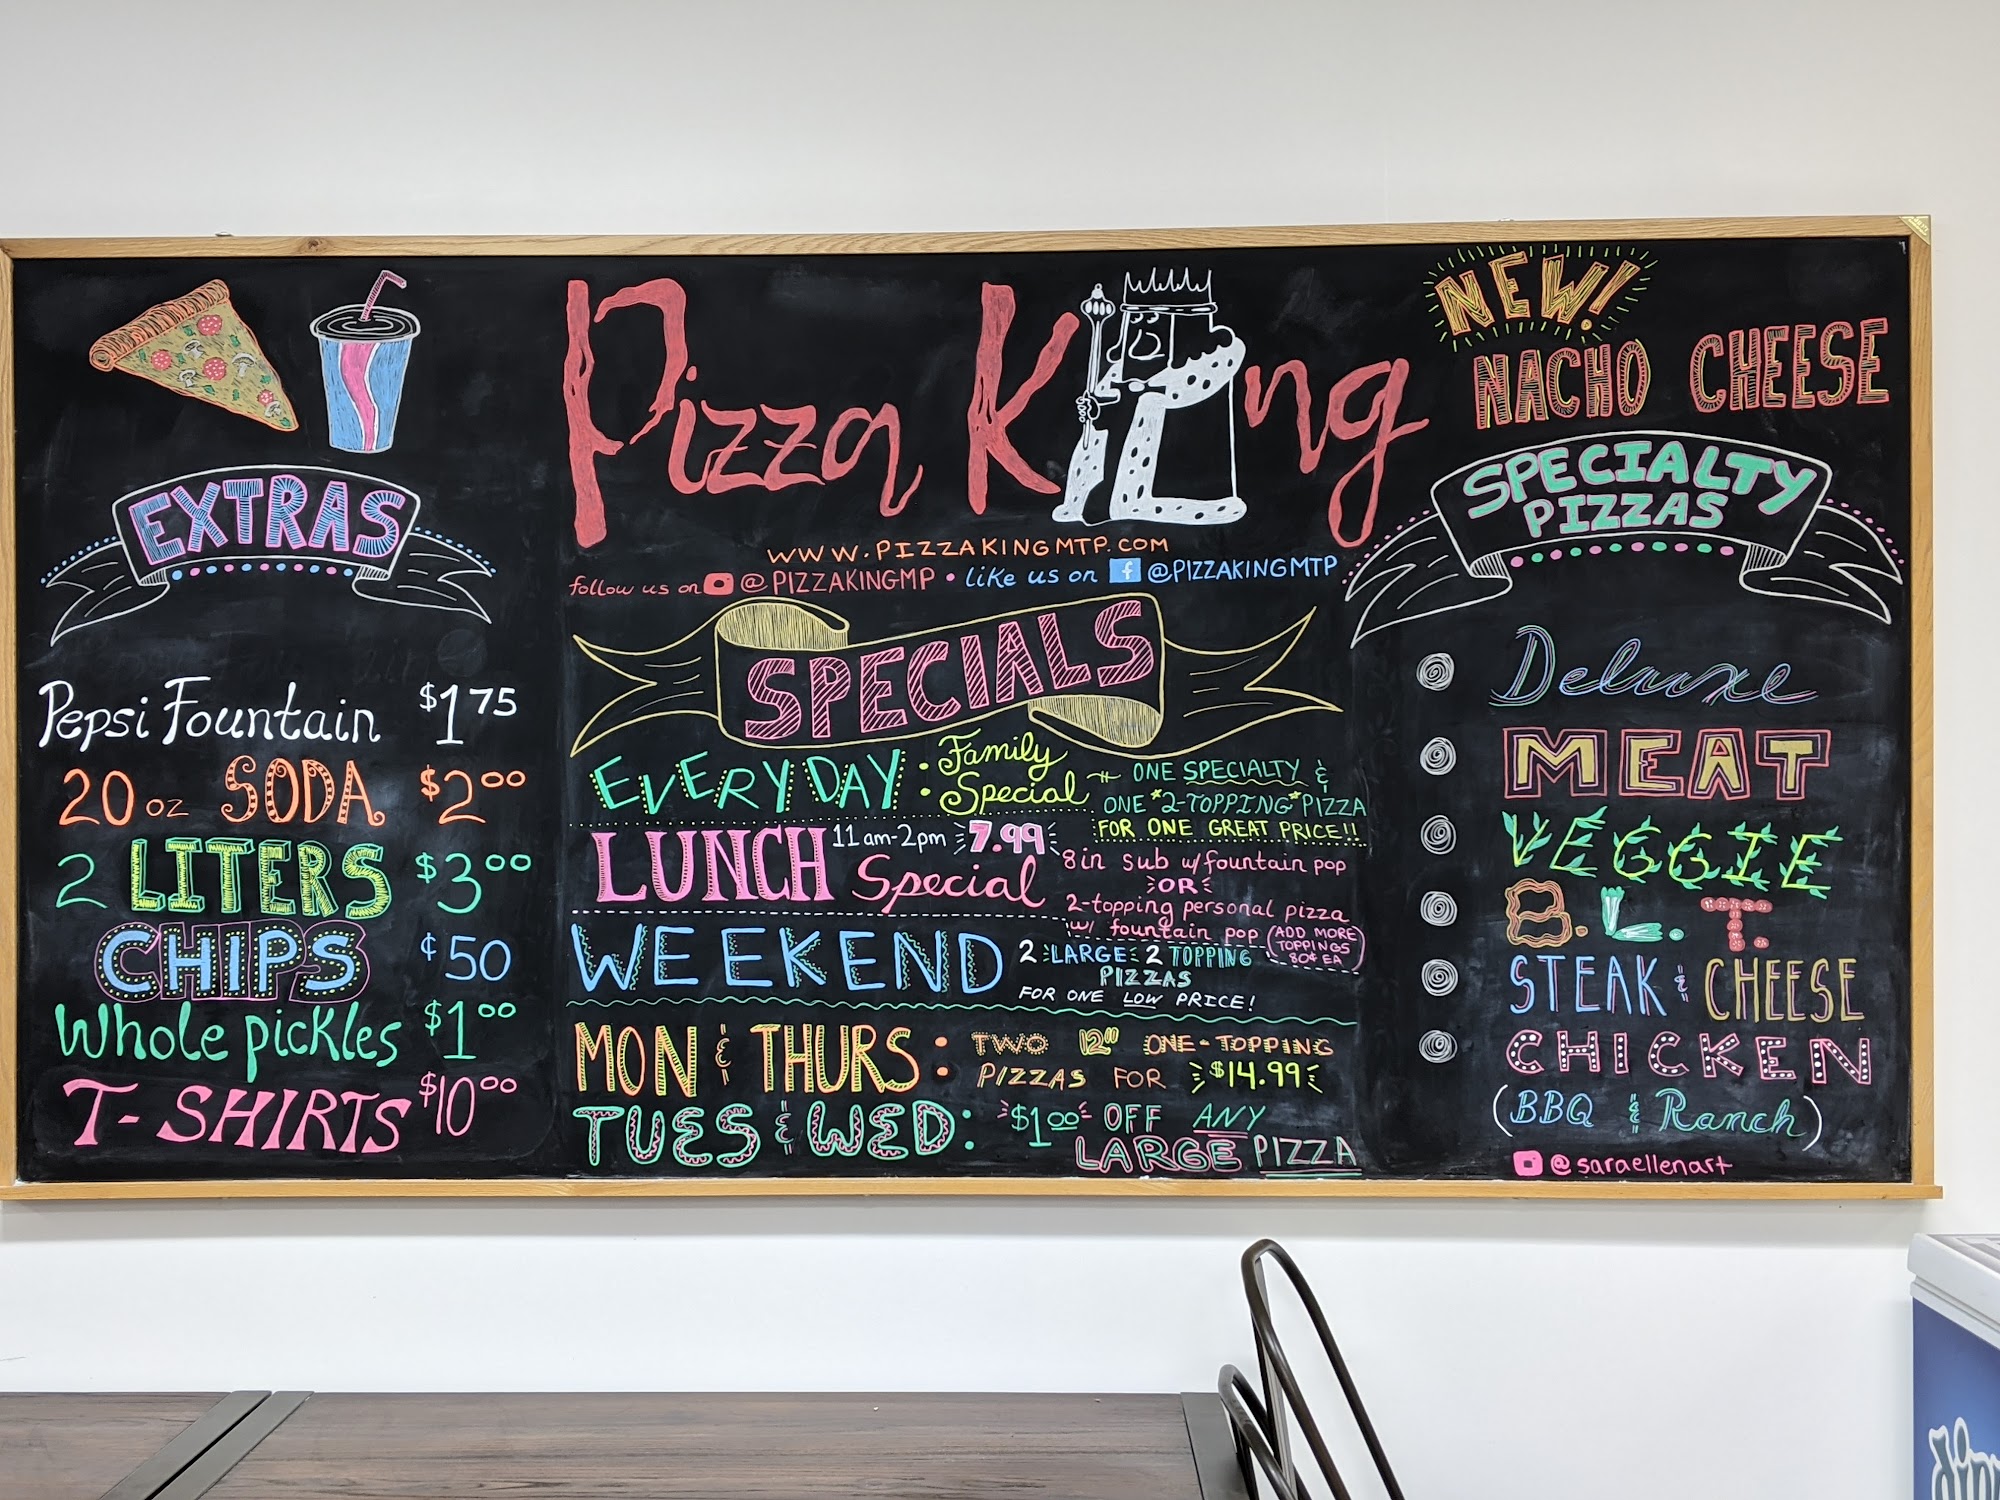 Pizza King
WWW.PIZZAKINGMTP.COM
follow us on @PIZZAKINGMP • like us on f @PIZZAKINGMTP
EXTRAS
Pepsi Fountain $1.75
20 oz SODA $2.00
2 LITERS $3.00
CHIPS ¢50
Whole pickles $1.00
T-SHIRTS $10.00
SPECIALS
EVERYDAY: Family Special ONE SPECIALTY &
ONE *2-TOPPING* PIZZA
FOR ONE GREAT PRICE!!
LUNCH Special 11am-2pm 7.99
8in sub w/fountain pop
OR
2-topping personal pizza
w/ fountain pop
(ADD MORE
TOPPINGS
80¢ EA)
WEEKEND 2 LARGE 2 TOPPING
PIZZAS
FOR ONE LOW PRICE!
MON & THURS: TWO 12" ONE-TOPPING
PIZZAS FOR $14.99
TUES & WED: $1.00 OFF ANY
LARGE PIZZA
NEW!
NACHO CHEESE
SPECIALTY
PIZZAS
Deluxe
MEAT
VEGGIE
B.L.T.
STEAK & CHEESE
CHICKEN
(BBQ & Ranch)
@saraellenart